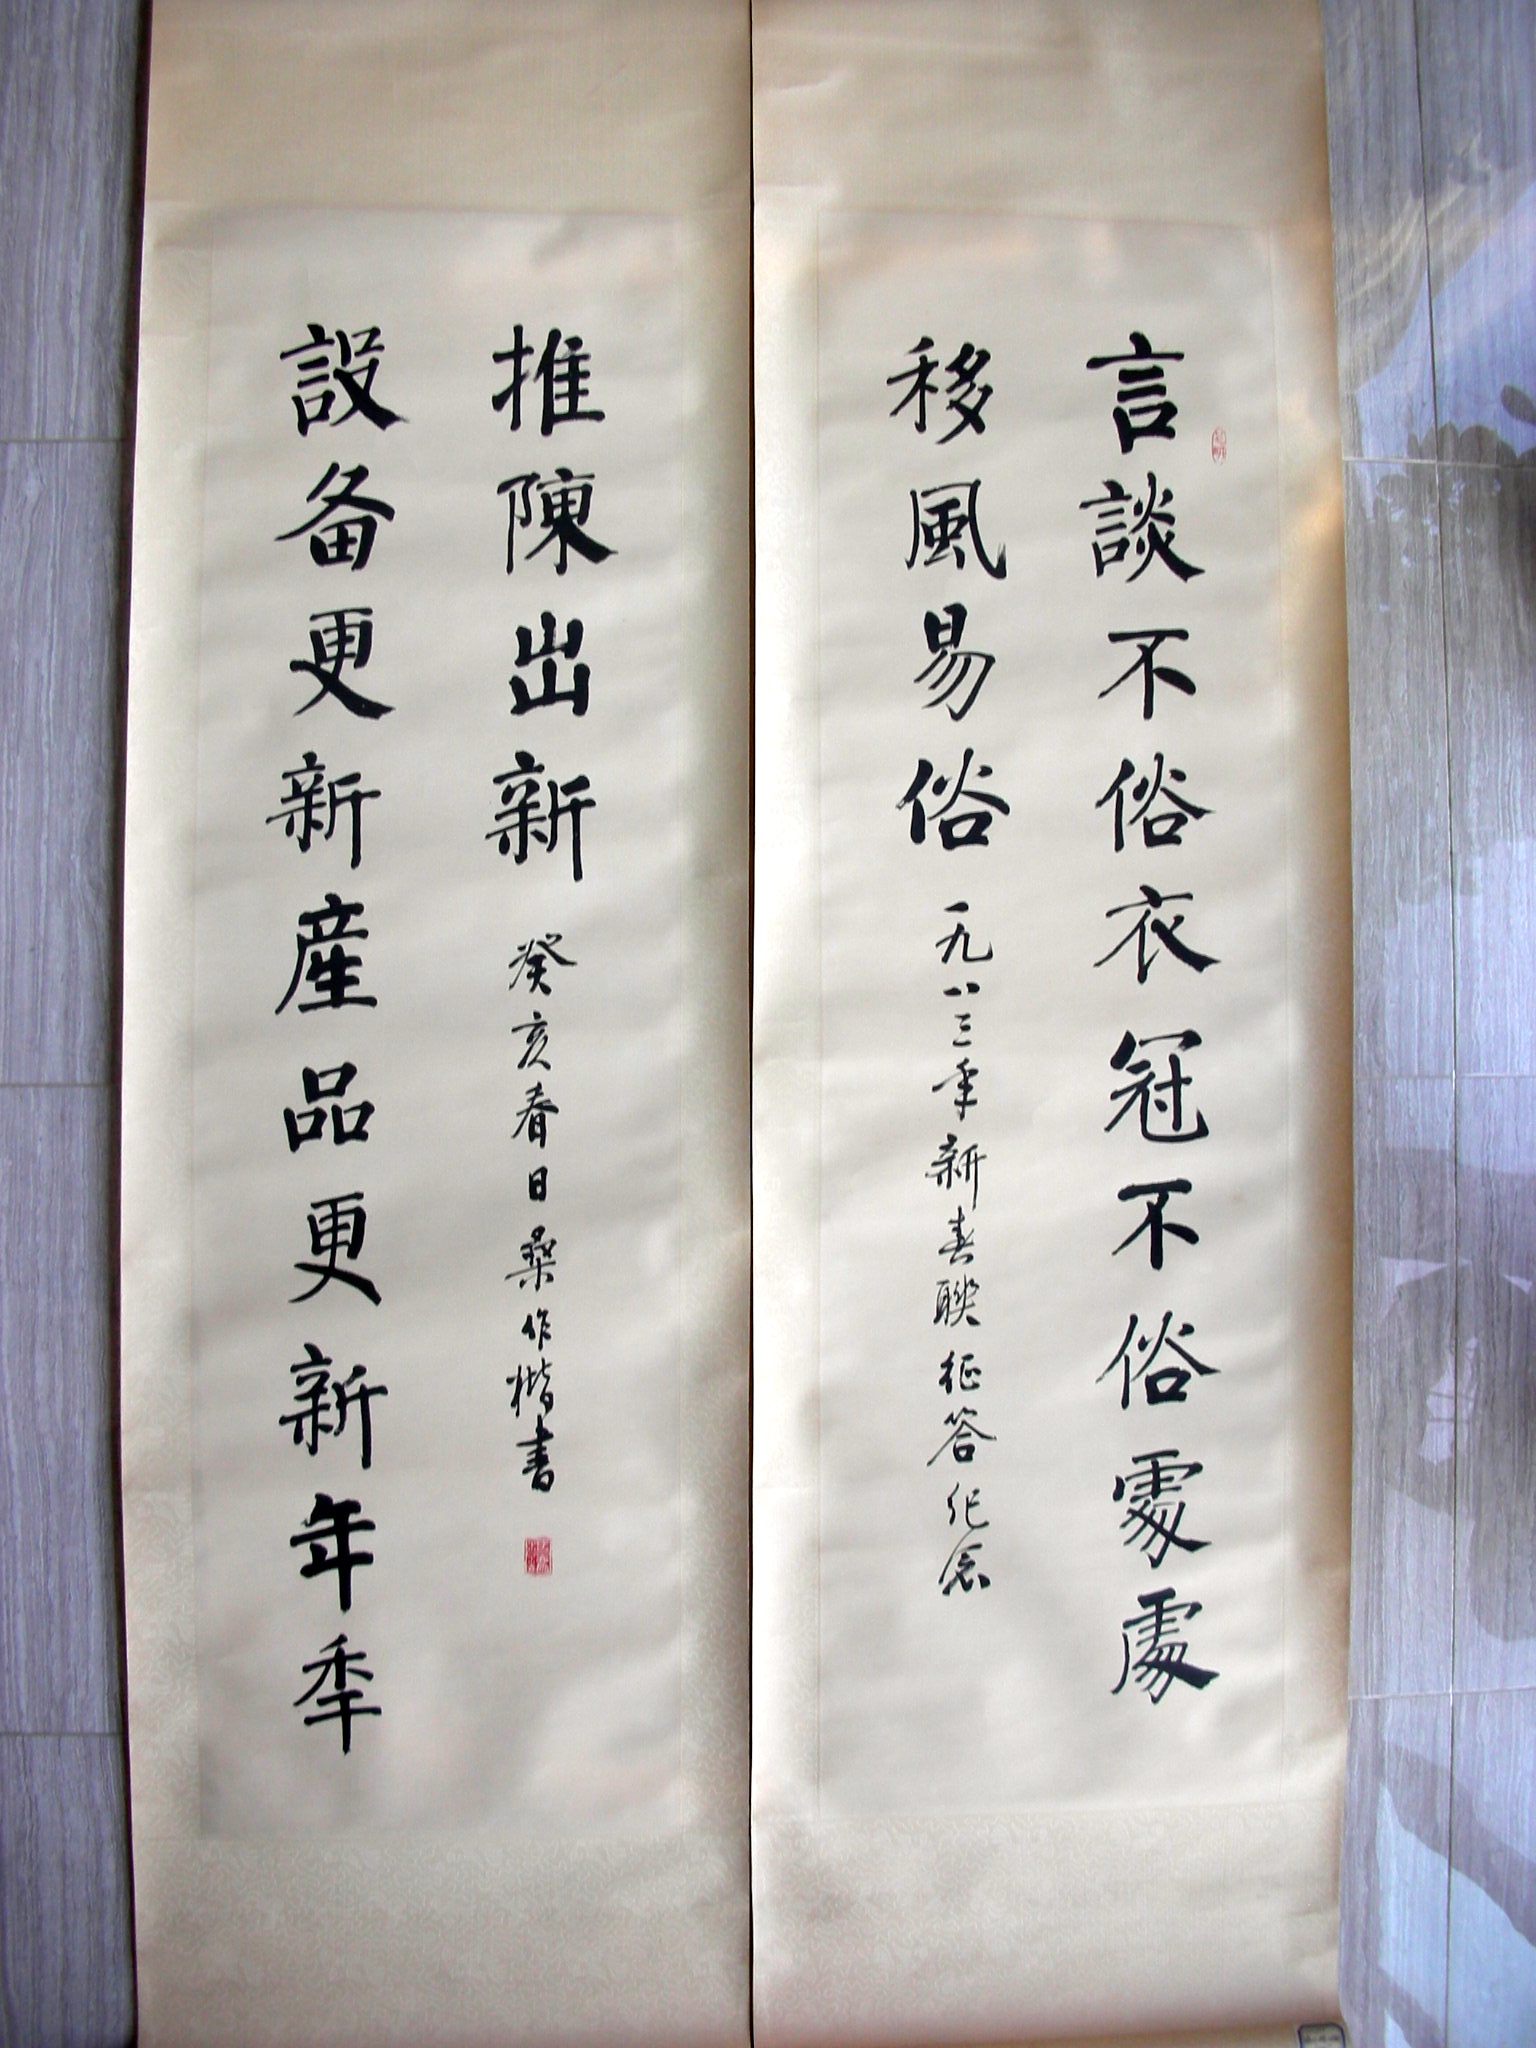 言談不俗衣冠不俗處處
移風易俗 一九八三年新春聯征答紀念
設备更新産品更新年季
推陳出新 癸亥春日桑作楷書